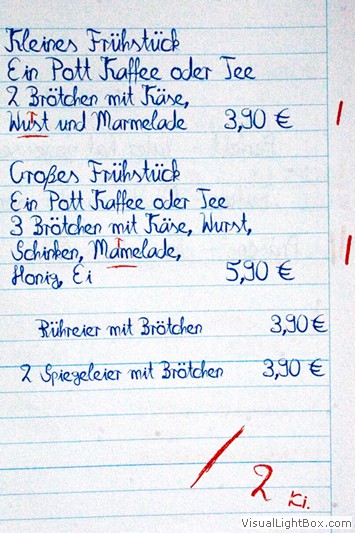 Kleines Frühstück
Ein Pott Kaffee oder Tee
2 Brötchen mit Käse,
Wust und Marmelade 3,90 €
Großes Frühstück
Ein Pott Kaffee oder Tee
3 Brötchen mit Käse, Wurst,
Schinken, Mamelade,
Honig, Ei 5,90 €
Rühreier mit Brötchen 3,90 €
2 Spiegeleier mit Brötchen 3,90 €
2 Ki.
VisualLightBox.com